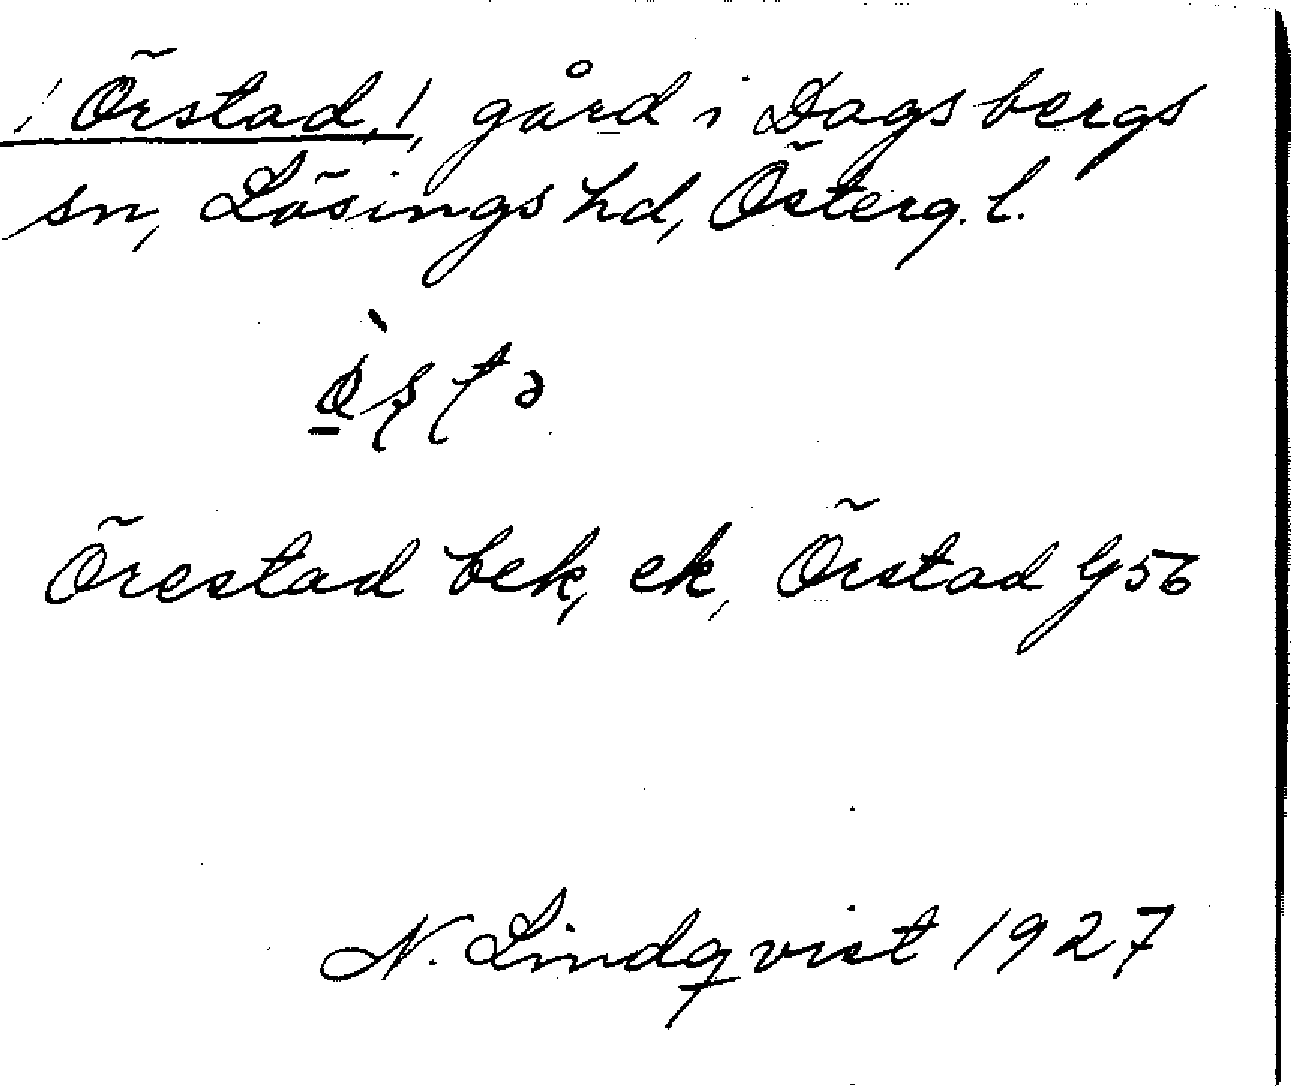 ! Örstad, !, gård i Dagsbergs
sn, Lösings hd, Österg. l.
Örestad bek, ek, Örstad G56
N. Lindqvist 1927